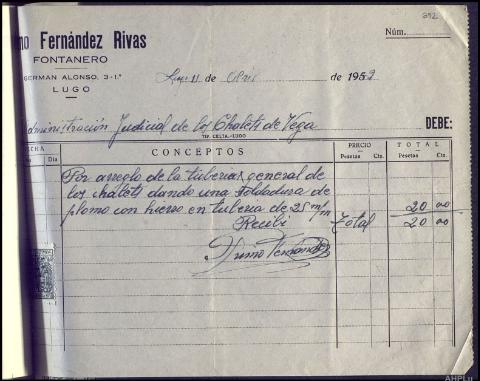 392
Núm.
no Fernández Rivas
FONTANERO
GERMAN ALONSO, 3-1.º
LUGO
Lugo 11 de Abril de 1952
Administración Judicial de los Chalets de Vega DEBE:
TIP. CELTA.-LUGO
CHA Día CONCEPTOS PRECIO Pesetas Cts. TOTAL Pesetas Cts.
Por arreglo de la tuberia general de
los chalets dando una soldadura de
plomo con hierro en tuberia de 25 m/m 20 00
Recibi Total 20 00
Fernández
AHPLu